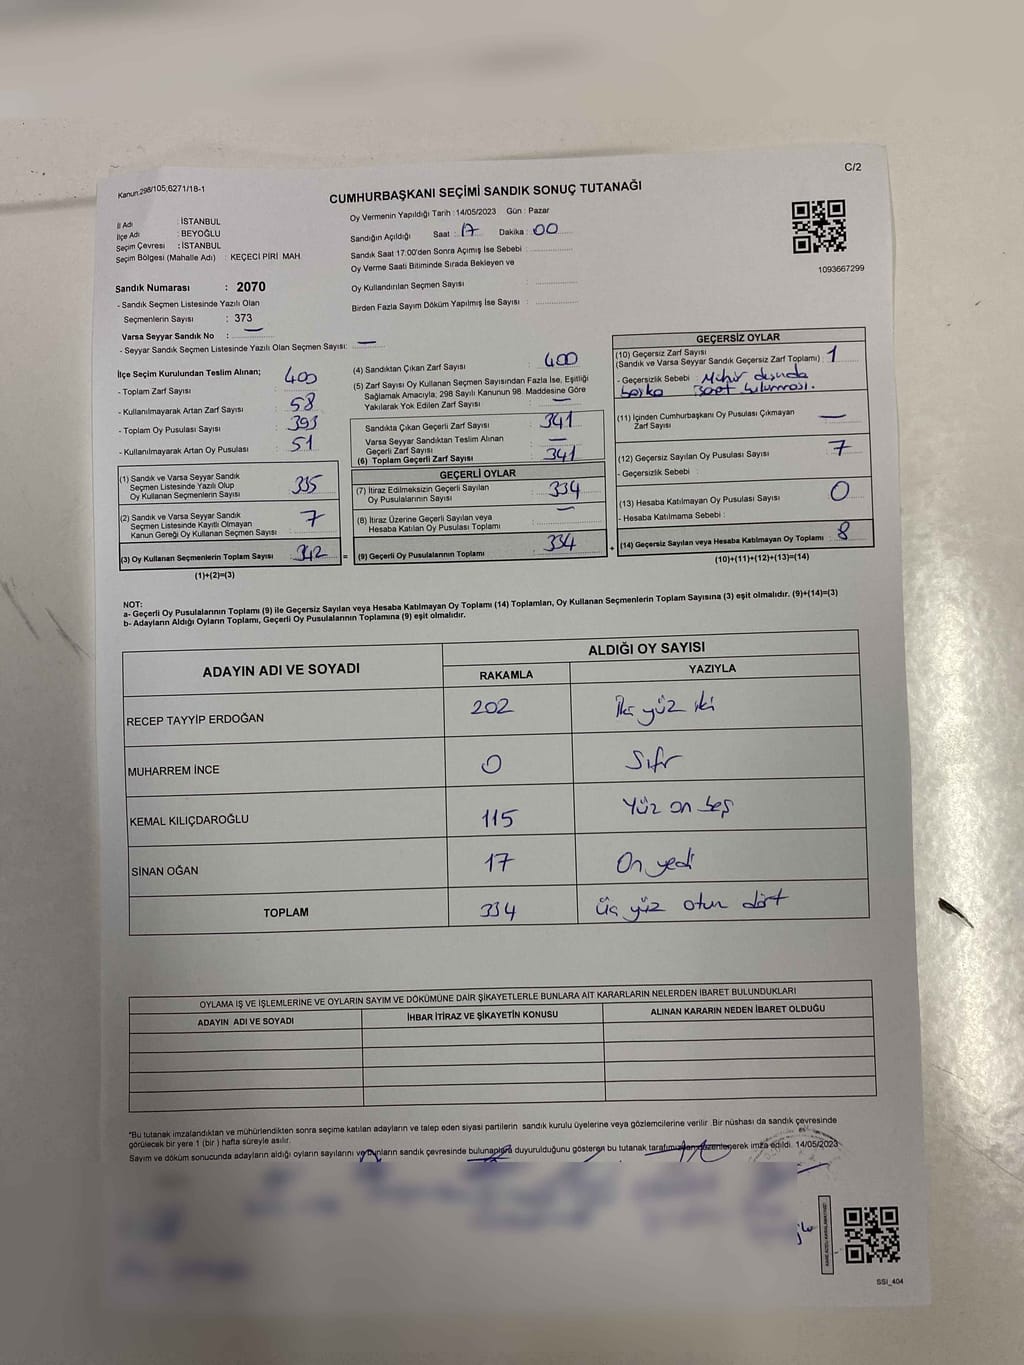 C/2
Kanun:298/105,6271/18-1
CUMHURBAŞKANI SEÇİMİ SANDIK SONUÇ TUTANAĞI
İl Adı : İSTANBUL
İlçe Adı : BEYOĞLU
Seçim Çevresi : İSTANBUL
Seçim Bölgesi (Mahalle Adı) : KEÇECİ PİRİ MAH
Oy Vermenin Yapıldığı Tarih :14/05/2023 Gün : Pazar
Sandığın Açıldığı Saat : 17 Dakika : 00
Sandık Saat 17:00'den Sonra Açımış İse Sebebi :
Oy Verme Saati Bitiminde Sırada Bekleyen ve
Oy Kullandırılan Seçmen Sayısı :
Birden Fazla Sayım Döküm Yapılmış İse Sayısı :
1093667299
Sandık Numarası : 2070
- Sandık Seçmen Listesinde Yazılı Olan
Seçmenlerin Sayısı : 373
Varsa Seyyar Sandık No : —
- Seyyar Sandık Seçmen Listesinde Yazılı Olan Seçmen Sayısı: —
İlçe Seçim Kurulundan Teslim Alınan;
- Toplam Zarf Sayısı : 400
- Kullanılmayarak Artan Zarf Sayısı : 58
- Toplam Oy Pusulası Sayısı : 393
- Kullanılmayarak Artan Oy Pusulası : 51
(1) Sandık ve Varsa Seyyar Sandık
Seçmen Listesinde Yazılı Olup
Oy Kullanan Seçmenlerin Sayısı : 335
(2) Sandık ve Varsa Seyyar Sandık
Seçmen Listesinde Kayıtlı Olmayan
Kanun Gereği Oy Kullanan Seçmen Sayısı : 7
(3) Oy Kullanan Seçmenlerin Toplam Sayısı : 342 =
(1)+(2)=(3)
(4) Sandıktan Çıkan Zarf Sayısı : 400
(5) Zarf Sayısı Oy Kullanan Seçmen Sayısından Fazla İse, Eşitliği
Sağlamak Amacıyla, 298 Sayılı Kanunun 98. Maddesine Göre
Yakılarak Yok Edilen Zarf Sayısı : —
Sandıkta Çıkan Geçerli Zarf Sayısı : 341
Varsa Seyyar Sandıktan Teslim Alınan
Geçerli Zarf Sayısı : —
(6) Toplam Geçerli Zarf Sayısı : 341
GEÇERLİ OYLAR
(7) İtiraz Edilmeksizin Geçerli Sayılan
Oy Pusulalarının Sayısı : 334
(8) İtiraz Üzerine Geçerli Sayılan veya
Hesaba Katılan Oy Pusulası Toplamı : —
(9) Geçerli Oy Pusulalarının Toplamı : 334 +
GEÇERSİZ OYLAR
(10) Geçersiz Zarf Sayısı
(Sandık ve Varsa Seyyar Sandık Geçersiz Zarf Toplamı) : 1
- Geçersizlik Sebebi : Mühür dışında
başka işaret bulunması.
(11) İçinden Cumhurbaşkanı Oy Pusulası Çıkmayan
Zarf Sayısı : —
(12) Geçersiz Sayılan Oy Pusulası Sayısı : 7
- Geçersizlik Sebebi :
(13) Hesaba Katılmayan Oy Pusulası Sayısı : 0
- Hesaba Katılmama Sebebi :
(14) Geçersiz Sayılan veya Hesaba Katılmayan Oy Toplamı : 8
(10)+(11)+(12)+(13)=(14)
NOT:
a- Geçerli Oy Pusulalarının Toplamı (9) ile Geçersiz Sayılan veya Hesaba Katılmayan Oy Toplamı (14) Toplamları, Oy Kullanan Seçmenlerin Toplam Sayısına (3) eşit olmalıdır. (9)+(14)=(3)
b- Adayların Aldığı Oyların Toplamı, Geçerli Oy Pusulalarının Toplamına (9) eşit olmalıdır.
ADAYIN ADI VE SOYADI ALDIĞI OY SAYISI
RAKAMLA YAZIYLA
RECEP TAYYİP ERDOĞAN 202 İki yüz iki
MUHARREM İNCE 0 Sıfır
KEMAL KILIÇDAROĞLU 115 Yüz on beş
SİNAN OĞAN 17 On yedi
TOPLAM 334 Üç yüz otuz dört
OYLAMA İŞ VE İŞLEMLERİNE VE OYLARIN SAYIM VE DÖKÜMÜNE DAİR ŞİKAYETLERLE BUNLARA AİT KARARLARIN NELERDEN İBARET BULUNDUKLARI
ADAYIN ADI VE SOYADI İHBAR İTİRAZ VE ŞİKAYETİN KONUSU ALINAN KARARIN NEDEN İBARET OLDUĞU
"Bu tutanak imzalandıktan ve mühürlendikten sonra seçime katılan adayların ve talep eden siyasi partilerin sandık kurulu üyelerine veya gözlemcilerine verilir .Bir nüshası da sandık çevresinde
görülecek bir yere 1 (bir ) hafta süreyle asılır.
Sayım ve döküm sonucunda adayların aldığı oyların sayılarını ve bunların sandık çevresinde bulunanlara duyurulduğunu gösteren bu tutanak tarafımızdan düzenlenerek imza edildi. 14/05/2023
SSI_404